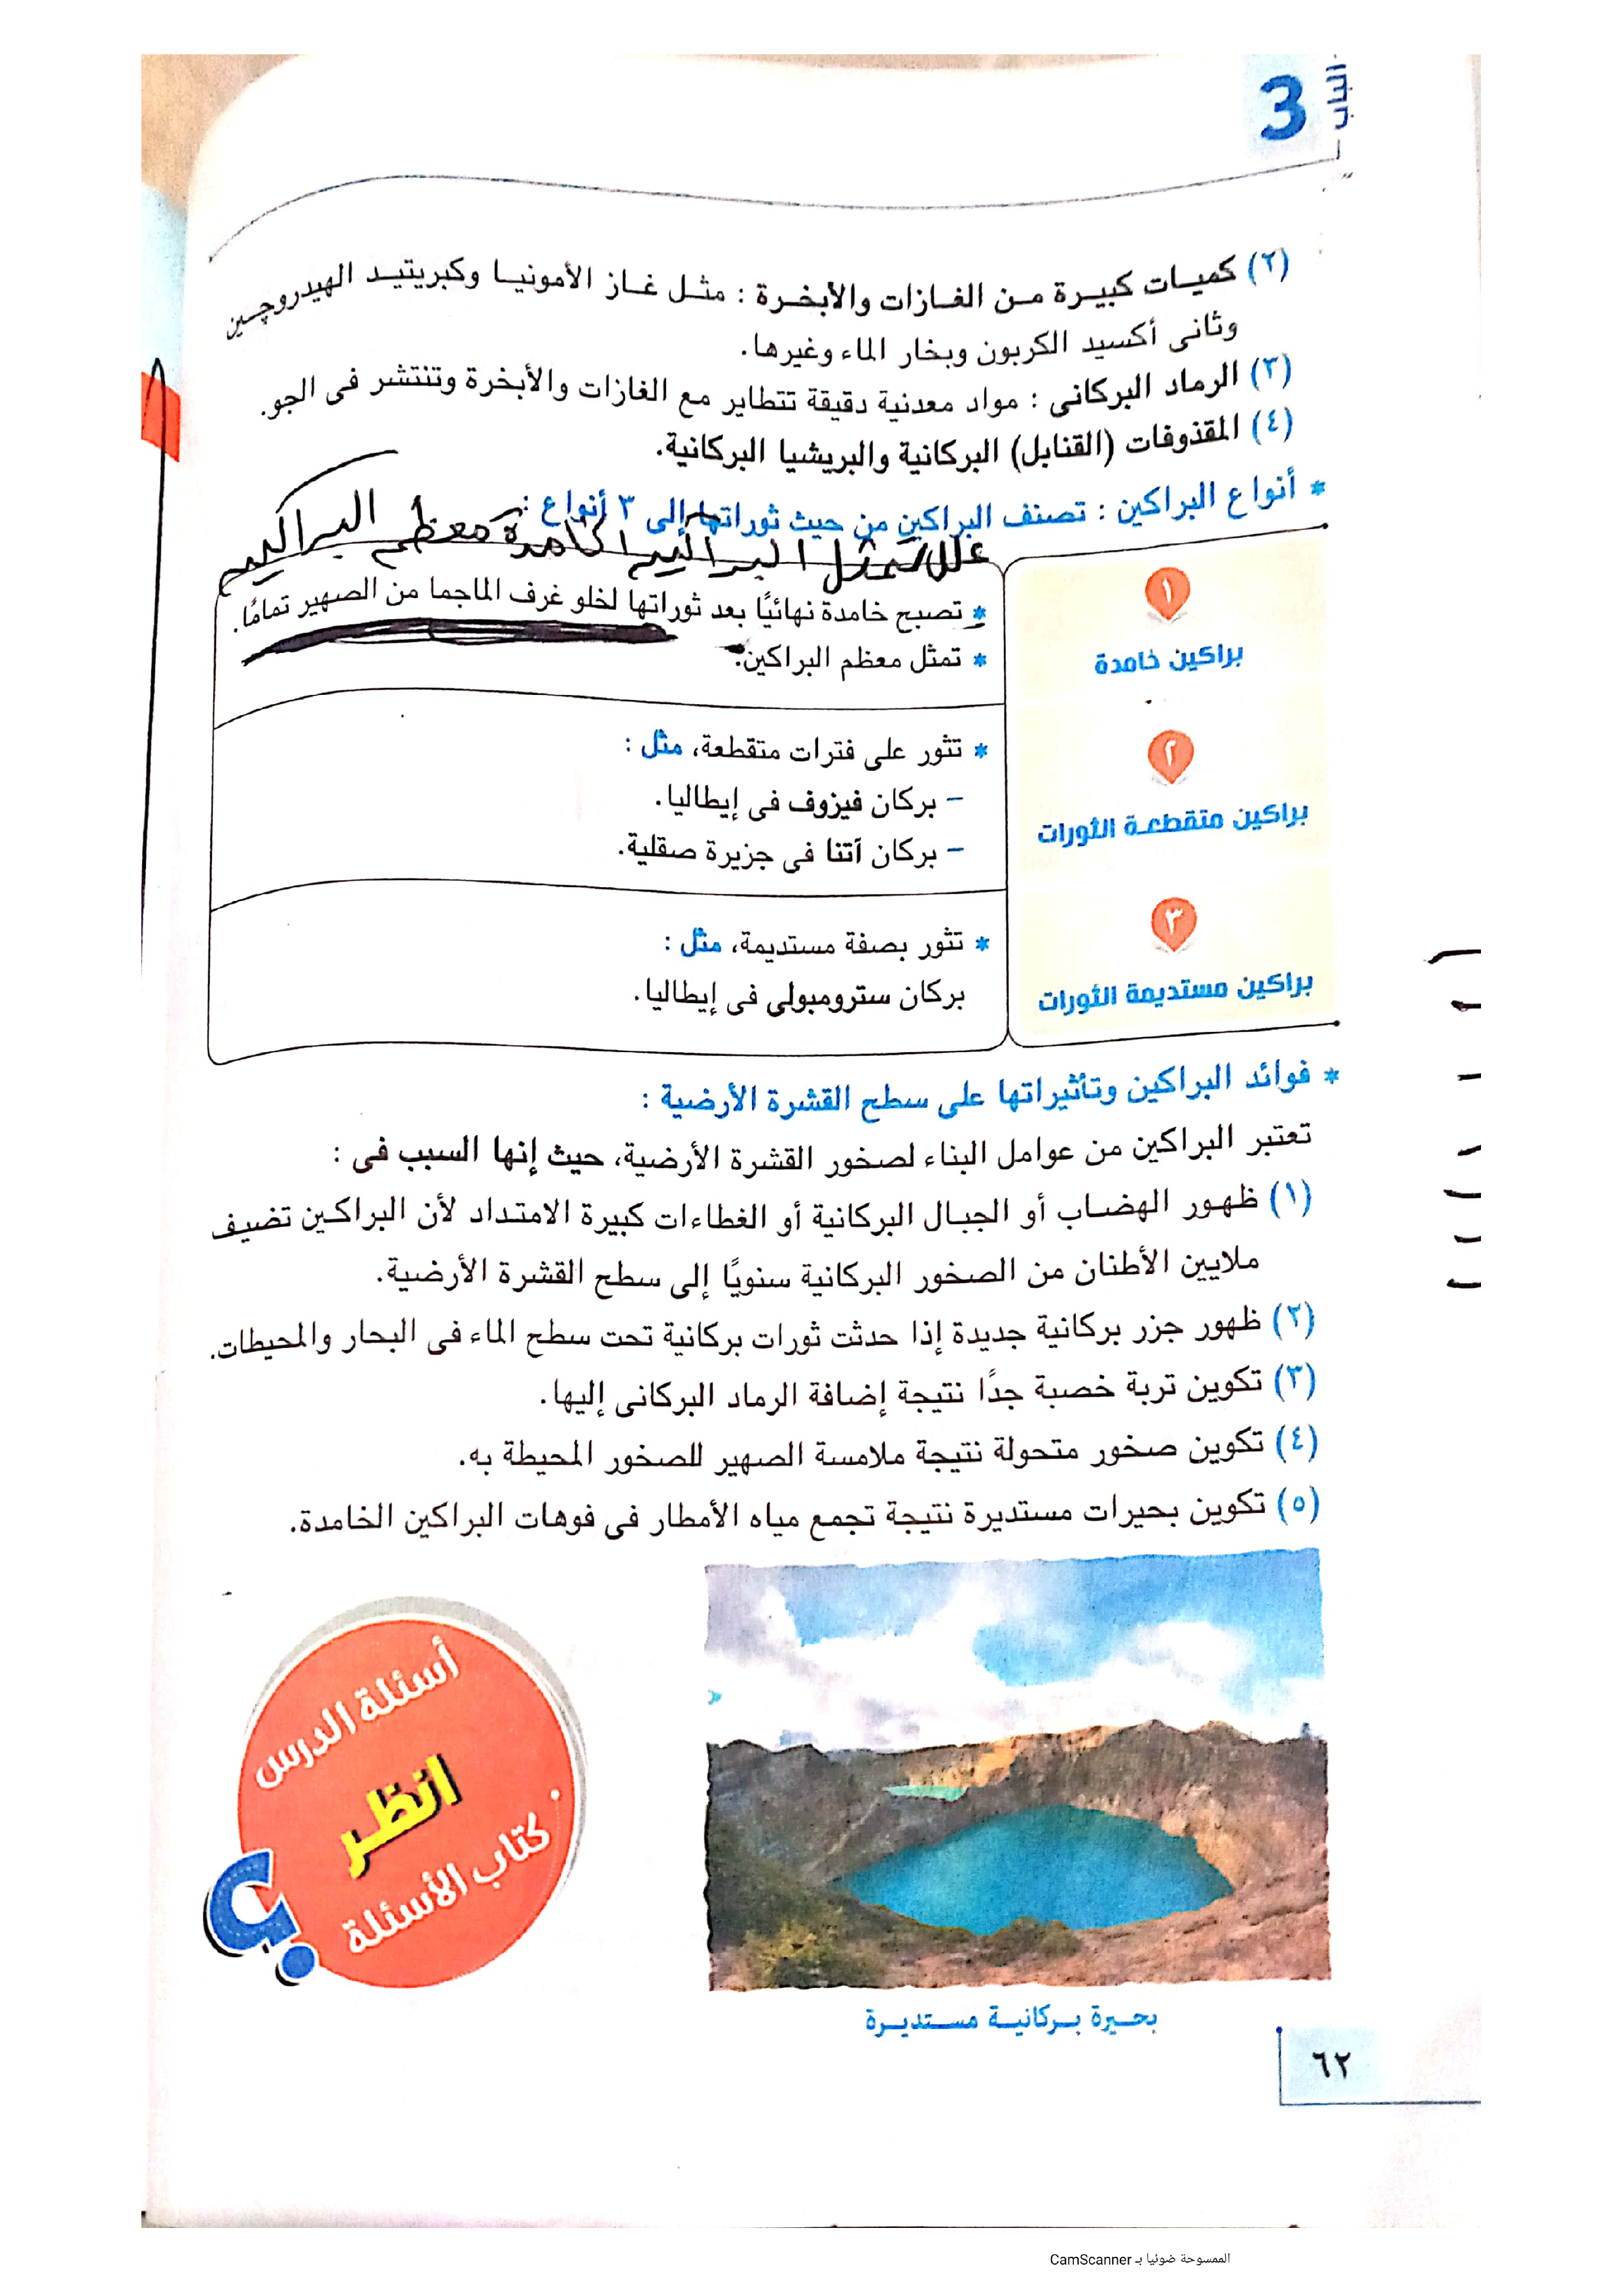 الباب
3
(٢) كميـات كبيـرة مـن الغـازات والأبخـرة : مثـل غـاز الأمونيـا وكبريتيـد الهيدروچـين
وثانى أكسيد الكربون وبخار الماء وغيرها.
(٣) الرماد البركانى : مواد معدنية دقيقة تتطاير مع الغازات والأبخرة وتنتشر فى الجو.
(٤) المقذوفات (القنابل) البركانية والبريشيا البركانية.
* أنواع البراكين : تصنف البراكين من حيث ثوراتها إلى ٣ أنواع :
علل تمثل البراكين الخامدة معظم البراكين
١
براكين خامدة
* تصبح خامدة نهائيًا بعد ثوراتها لخلو غرف الماجما من الصهير تمامًا.
* تمثل معظم البراكين.
٢
براكين متقطعـة الثورات
* تثور على فترات متقطعة، مثل :
– بركان فيزوف فى إيطاليا.
– بركان أتنا فى جزيرة صقلية.
٣
براكين مستديمة الثورات
* تثور بصفة مستديمة، مثل :
بركان سترومبولى فى إيطاليا.
* فوائد البراكين وتأثيراتها على سطح القشرة الأرضية :
تعتبر البراكين من عوامل البناء لصخور القشرة الأرضية، حيث إنها السبب فى :
(١) ظهـور الهضـاب أو الجبـال البركانية أو الغطاءات كبيرة الامتـداد لأن البراكـين تضيف
ملايين الأطنان من الصخور البركانية سنويًا إلى سطح القشرة الأرضية.
(٢) ظهور جزر بركانية جديدة إذا حدثت ثورات بركانية تحت سطح الماء فى البحار والمحيطات.
(٣) تكوين تربة خصبة جدًا نتيجة إضافة الرماد البركانى إليها.
(٤) تكوين صخور متحولة نتيجة ملامسة الصهير للصخور المحيطة به.
(٥) تكوين بحيرات مستديرة نتيجة تجمع مياه الأمطار فى فوهات البراكين الخامدة.
أسئلة الدرس
انظـر
كتاب الأسئلة
؟
بحـيرة بـركانيـة مسـتديـرة
٦٢
الممسوحة ضوئيا بـ CamScanner